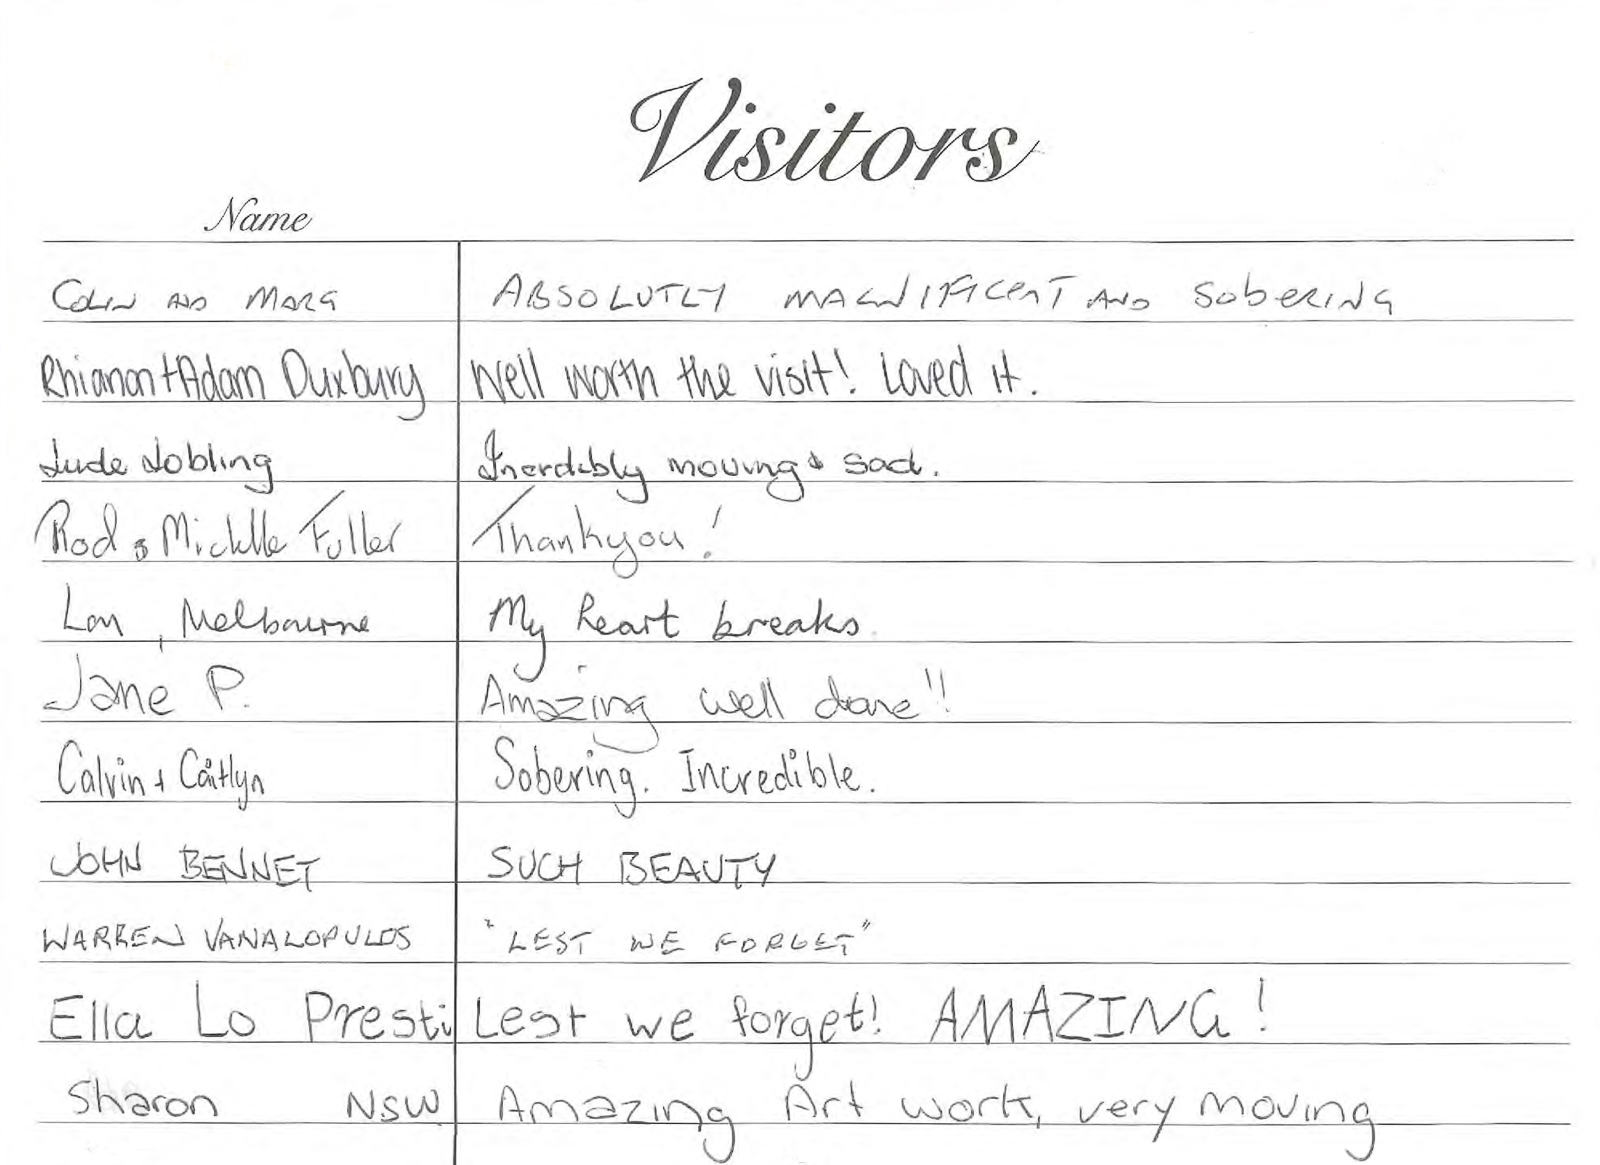 Visitors
Name
COLIN AND MARG ABSOLUTLY MAGNIFICENT AND SOBERING
Rhianon + Adam Duxbury Well worth the visit! Loved it.
Jude Jobling Incredibly moving & sad.
Rod & Michelle Fuller Thankyou!
Lon, Melbourne My heart breaks.
Jane P. Amazing well done!!
Calvin + Caitlyn Sobering. Incredible.
JOHN BENNET SUCH BEAUTY
WARREN VANALOPULOS "LEST WE FORGET"
Ella Lo Presti Lest we forget! AMAZING!
Sharon NSW Amazing Art work, very moving